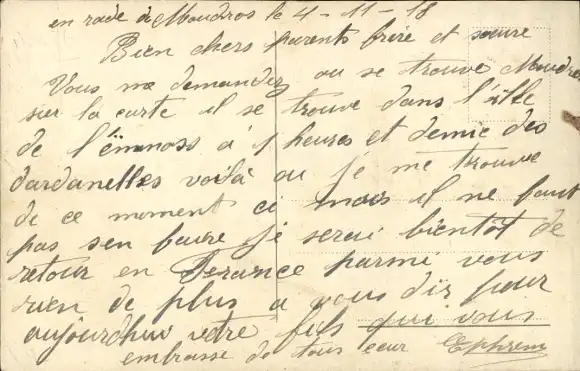 en rade de Moudros le 4-11-18
Bien chers parents frère et soeure
Vous me demandez ou se trouve Moudros
sur la carte il se trouve dans l'ille
de l'émnoss à 1 heures et demie des
dardanelles voilà ou je me trouve
de ce moment ci mais il ne faut
pas sen faire je serai bientôt de
retour en France parmi vous
rien de plus a vous dir pour
aujourdhui votre fils qui vous
embrasse de tous coeur Ephrem